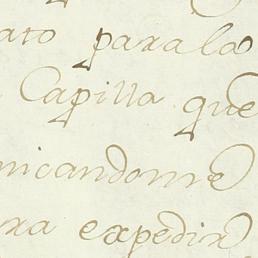 ato para la
Capilla que
nicandome
ra expedir